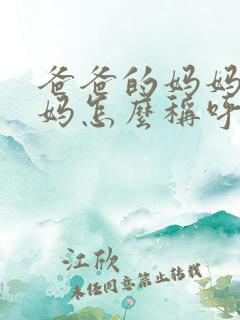 爸爸的妈妈
妈怎麼稱呼
江欣
未经同意禁止转载